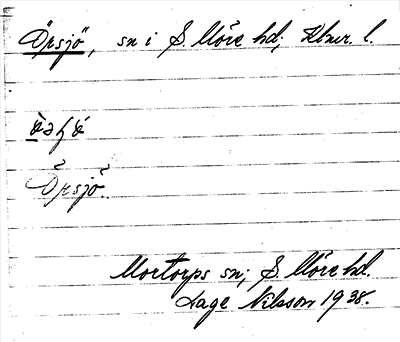 Örsjö, sn i S. Möre hd, Klmr. l.
Örsjö.
Mortorps sn; S. Möre hd.
Lage Nilsson 1938.